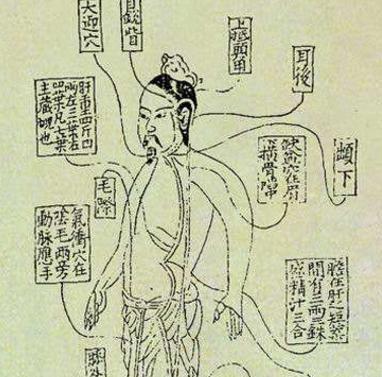 大迎穴
目銳眥
上抵頭角
耳後
肝重四斤四
兩左三葉右
四葉凡七葉
主藏魂也
毛際
缺盆穴在肩
上橫骨陷
氣衝穴在
陰毛兩旁
動脈應手
膽在肝之短葉
間有三兩三銖
盛精汁三合